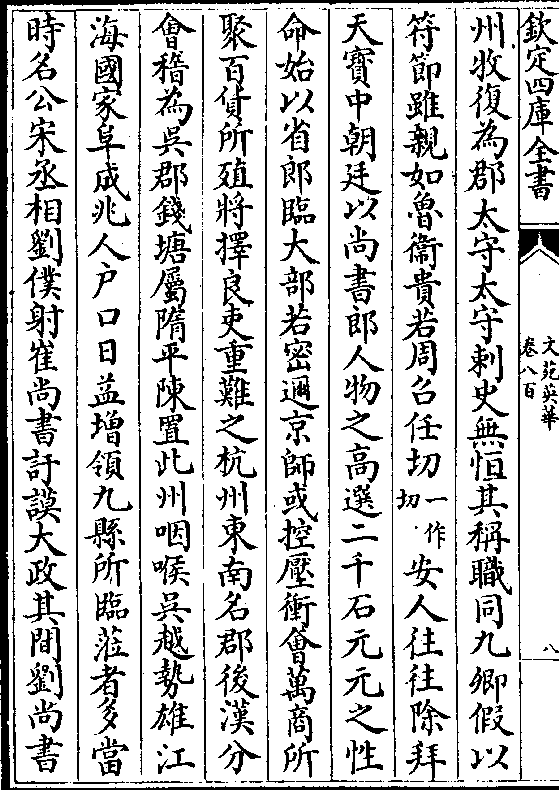 欽定四庫全書
文苑英華
卷八百
八
州牧復為郡太守太守刺史無恒其稱職同九卿假以
符節雖親如魯衞貴若周召任切一作切安人往往除拜
天寶中朝廷以尚書郎人物之高選二千石元元之性
命始以省郎臨大部若密邇京師或控壓衝會萬商所
聚百貨所殖將擇良吏重難之杭州東南名郡後漢分
會稽為吳郡錢塘屬隋平陳置此州咽喉吳越勢雄江
海國家阜成兆人户口日益增領九縣所臨蒞者多當
時名公宋丞相劉僕射崔尚書訏謨大政其間劉尚書